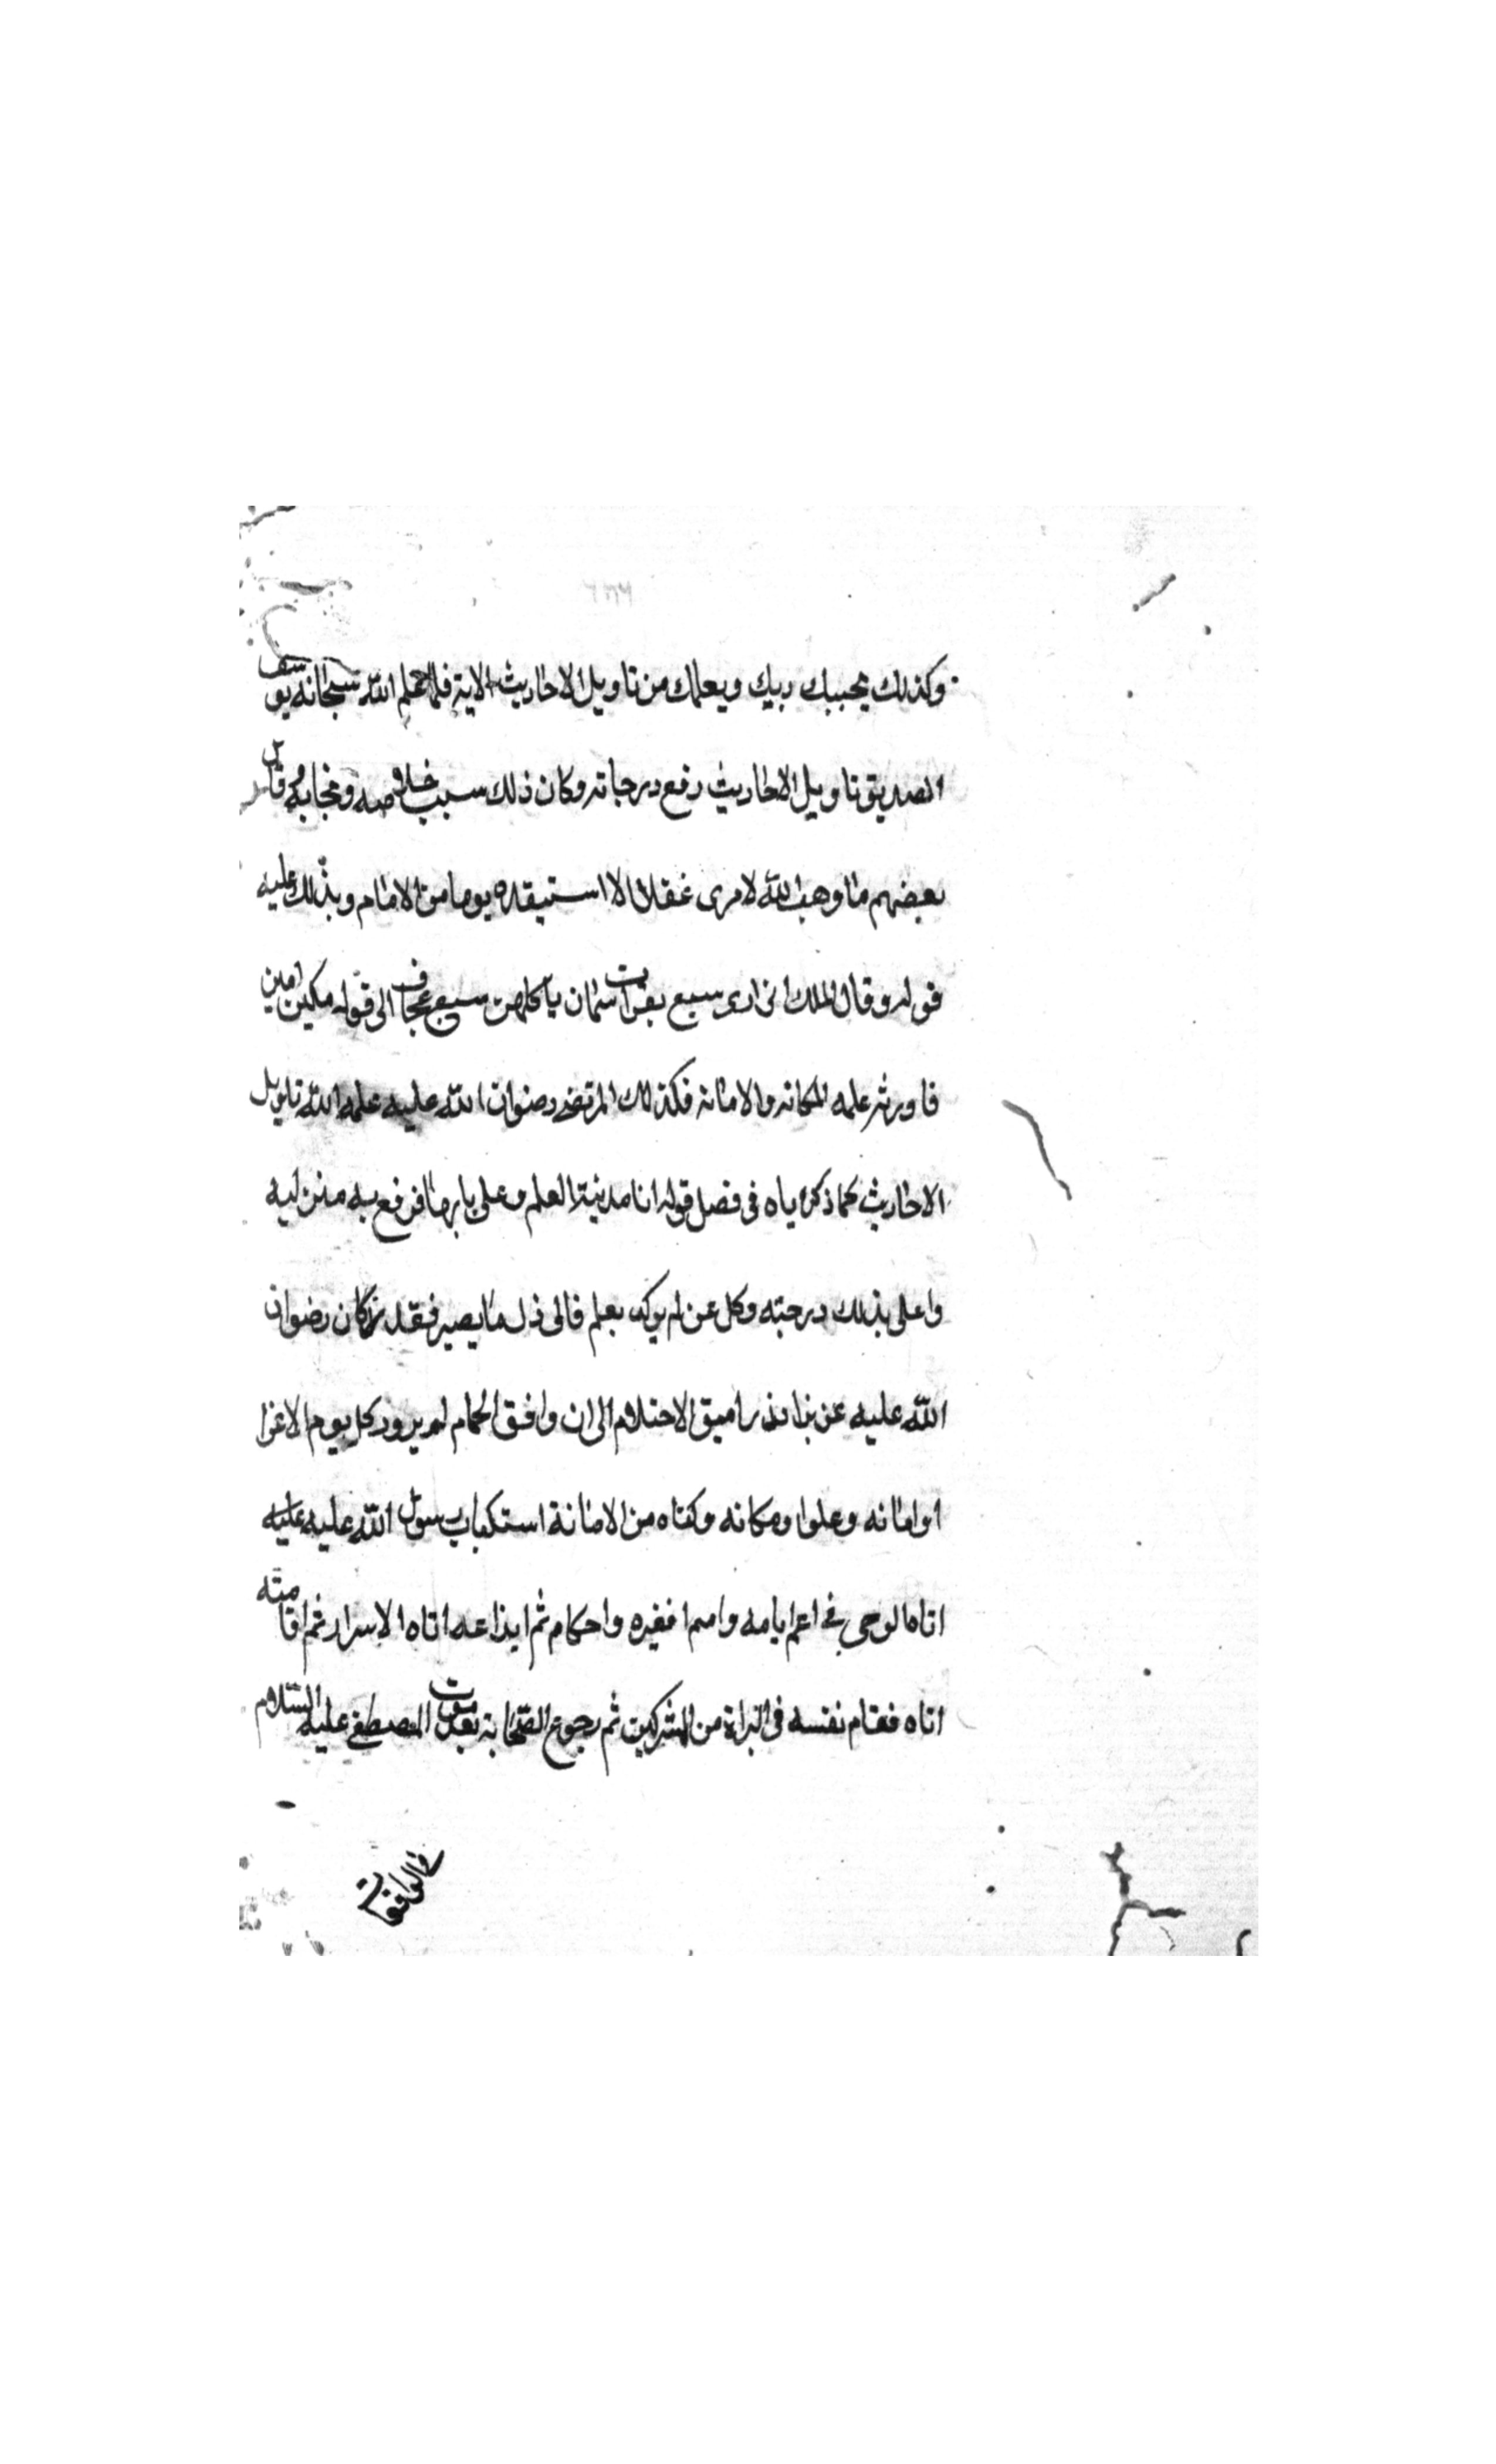 وكذلك يجتبيك ربك ويعلمك من تاويل الاحاديث الاية فلما علم الله سبحانه يوسف
الصديق تاويل الاحاديث رفع درجاته وكان ذلك سبب خلاصه ونجابه وقال
بعضهم ما وهب الله لامرى عقلا الا استيقده يوما من الامام وبذلك عليه
قوله وقال الملك انى ارى سبع بقرات سمان ياكلهن سبع عجاف الى قوله مكين امين
فاورثه علمه المكانه والامانه فكذلك المرتضى رضوان الله عليه علمه الله تاويل
الاحاديث كما ذكرناه فى فصل قوله انا مدينة العلم وعلى بابها فرفع به منزليه
واعلى بذلك درجته وكل عن لم يوكد بعلم فالى ذل ما يصير فقد كان رضوان
الله عليه عن الاحتلام الى ان وافق الحمام لم يزود كل يوم الا عزا
او امانه وعلوا ومكانه وكفاه من الامانة استكتاب رسول الله عليه عليه
اتاه الوحى فى واحكام ثم ايداعه اتاه الاسرار ثم اقامته
اتاه فقام نفسه فى البراءة من المشركين ثم رجوع الصحابة بعد موت المصطفى عليه السلام
فى الواقعات